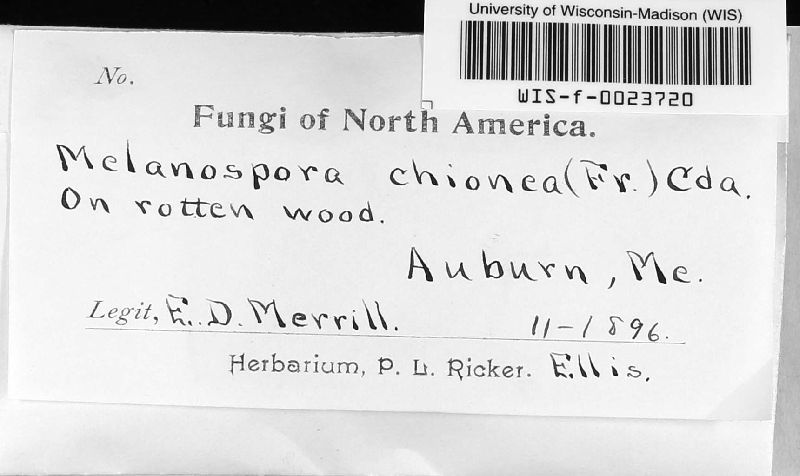 University of Wisconsin-Madison (WIS)
WIS-f-0023720
No.
Fungi of North America.
Melanospora chionea (Fr.) Cda.
On rotten wood.
Auburn, Me.
Legit, E. D. Merrill. 11-1896.
Herbarium, P. L. Ricker. Ellis.